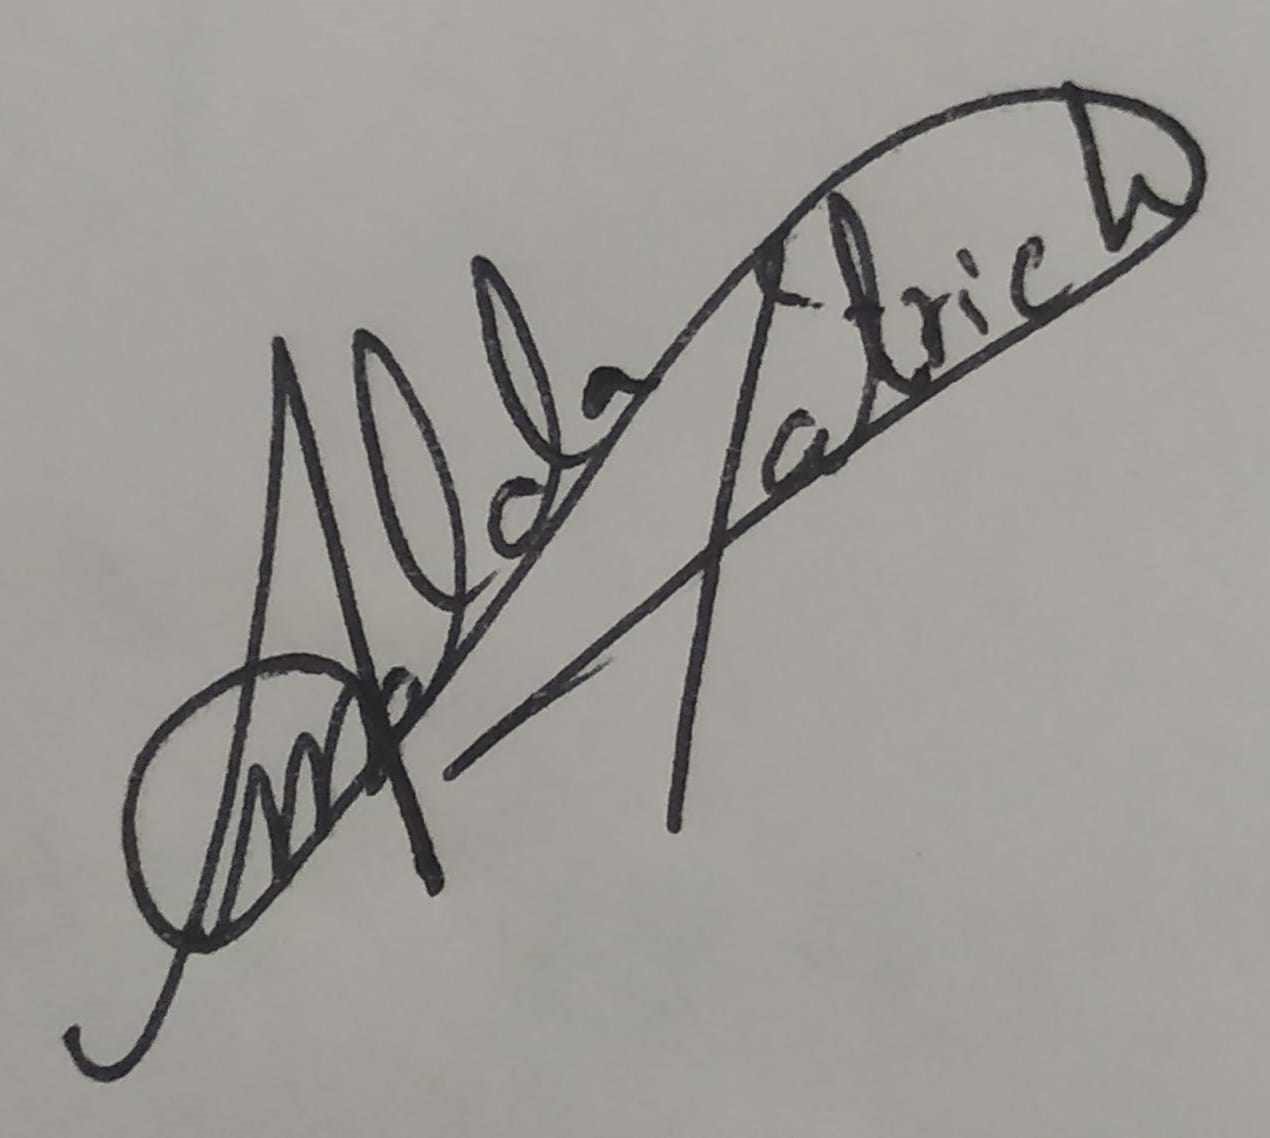 Amalda Patrick